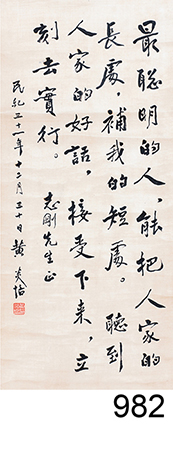 最聪明的人，能把人家的
長處，補我的短處。聽到
人家的好話，接受下來，立
刻去實行。
志剛先生正
民紀三十一年十二月三十日黄炎培
982